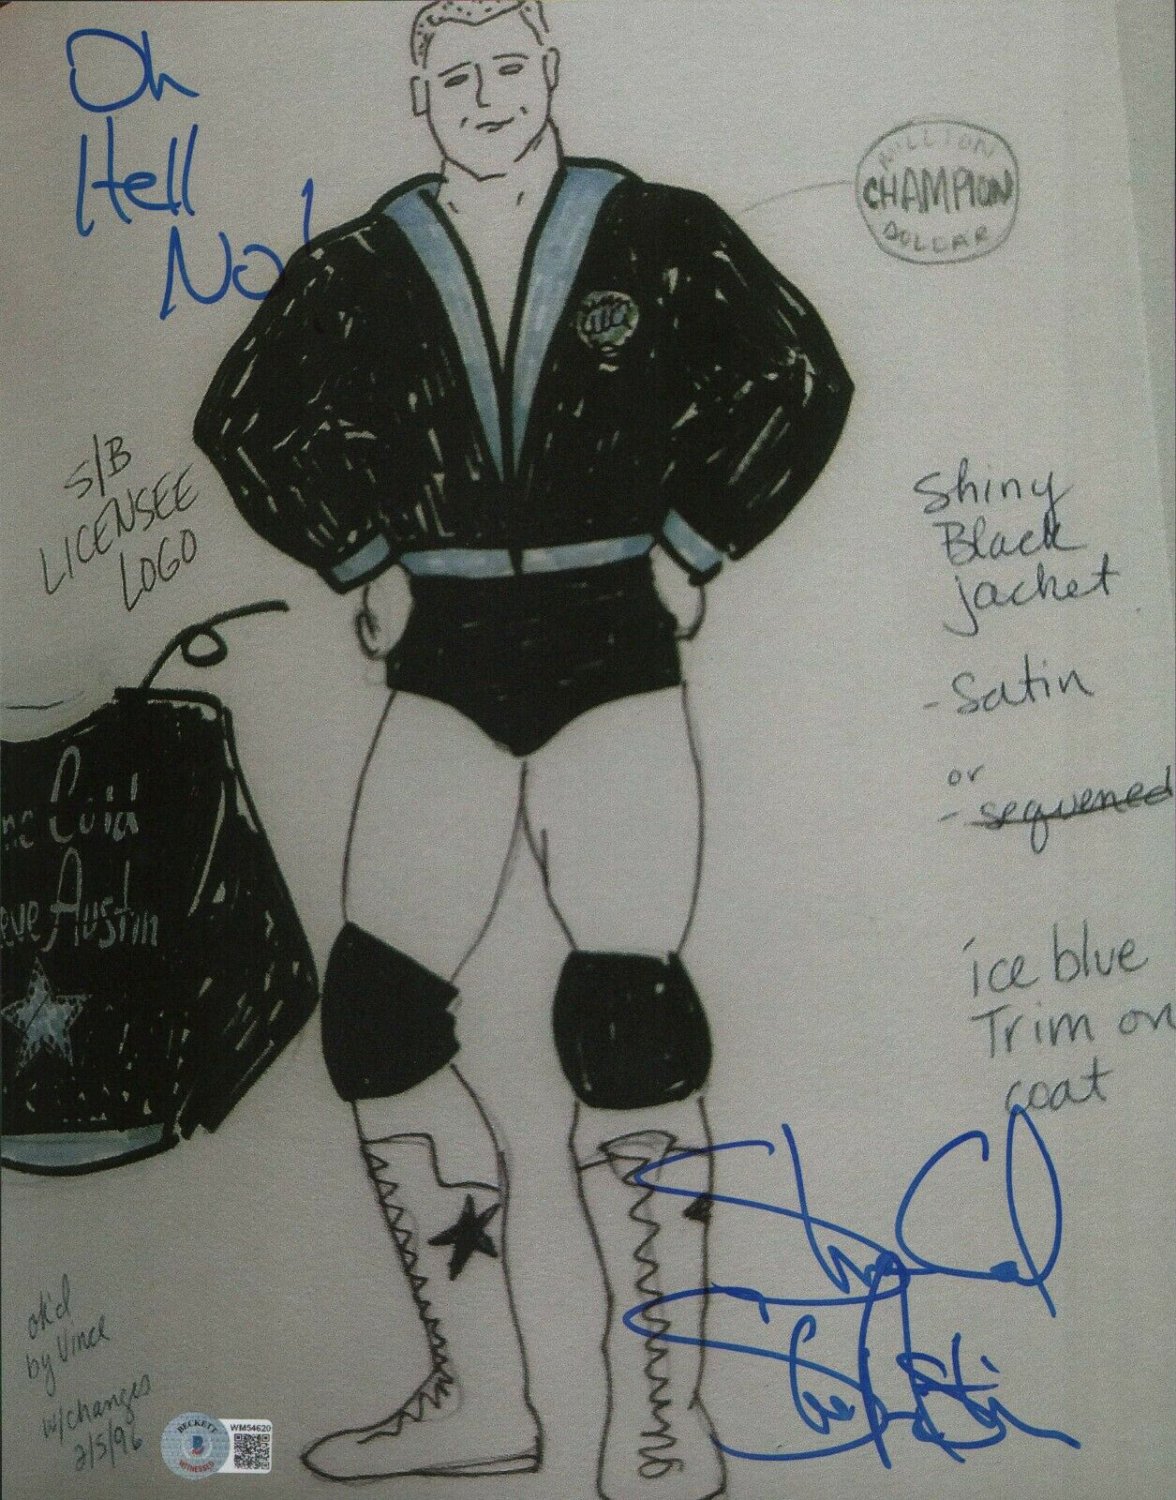 Oh
Hell
No!
MILLION
CHAMPION
DOLLAR
S/B
LICENSEE
LOGO
Shiny
Black
jacket
- Satin
or
- sequened
ne Cold
eve Austin
ice blue
Trim on
coat
Stone Cold
Steve Austin
ok'd
by Vince
w/changes
2/5/96
BECKETT
B
WITNESSED
WM54620